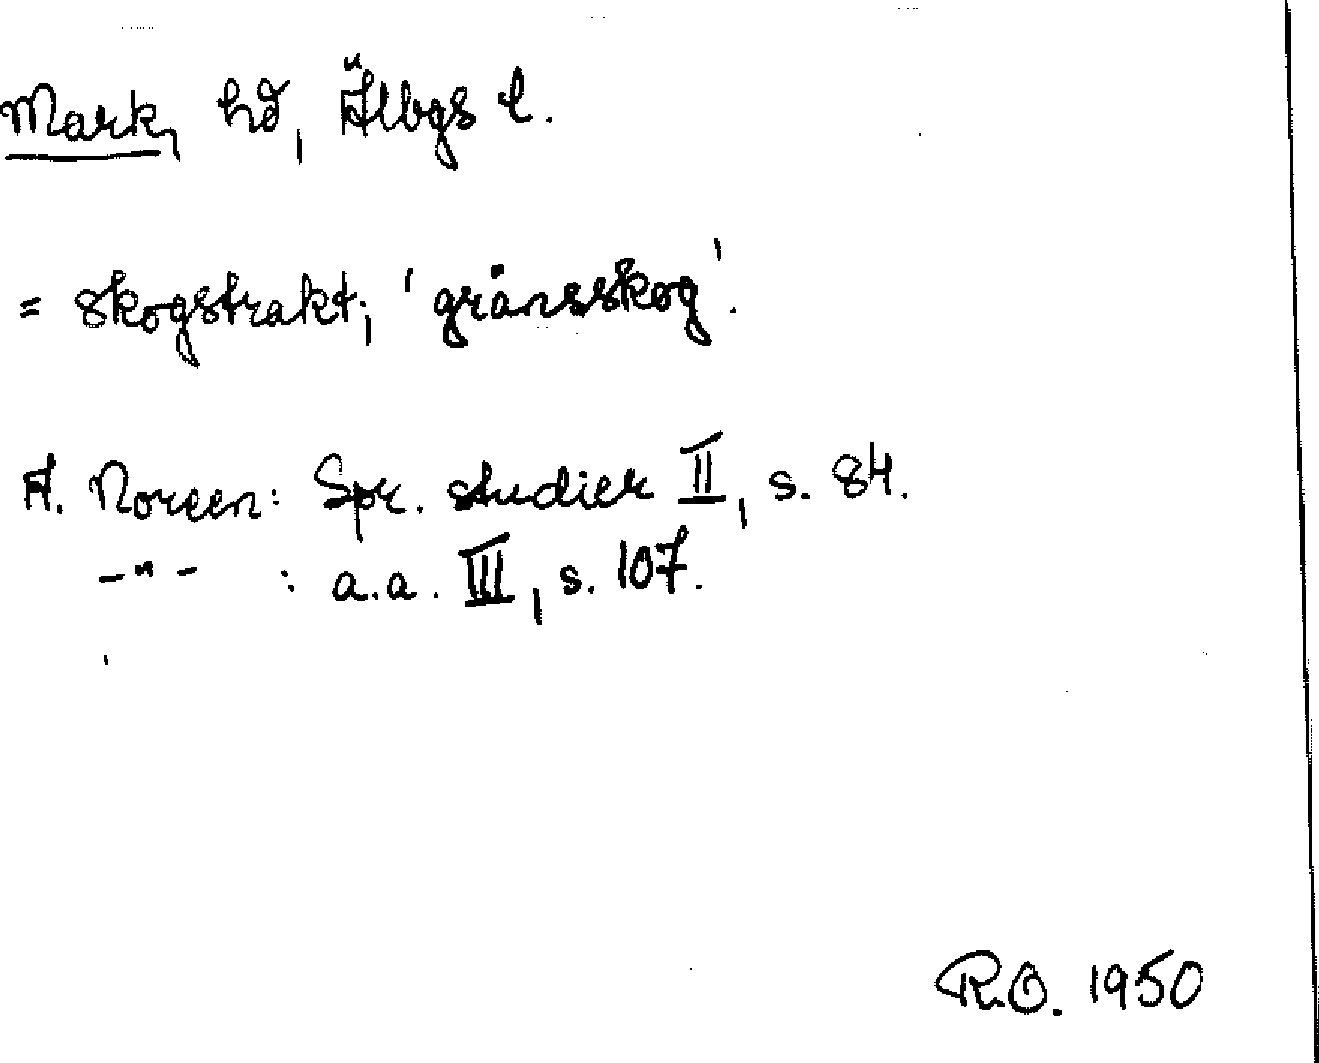 Mark, hd, Älbgs l.
= skogstrakt; 'gränsskog'.
A. Noreen: Spr. studier II, s. 84.
-"- : a.a. III, s. 107.
R.O. 1950